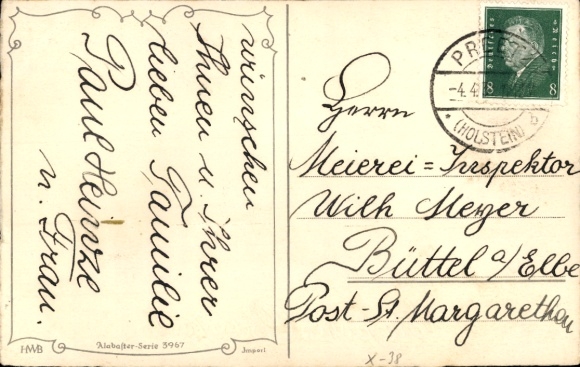 wünschen
Ihnen u. Ihrer
lieben Familie
Paul Heinze
u. Frau.
HWB
Alabaster-Serie 3967
Import
Deutsches Reich
8 8
-4.4
(HOLSTEIN)
b
Herrn
Meierei=Inspektor
Wilh Meyer
Büttel a/Elbe
Post-St. Margarethen
X-38